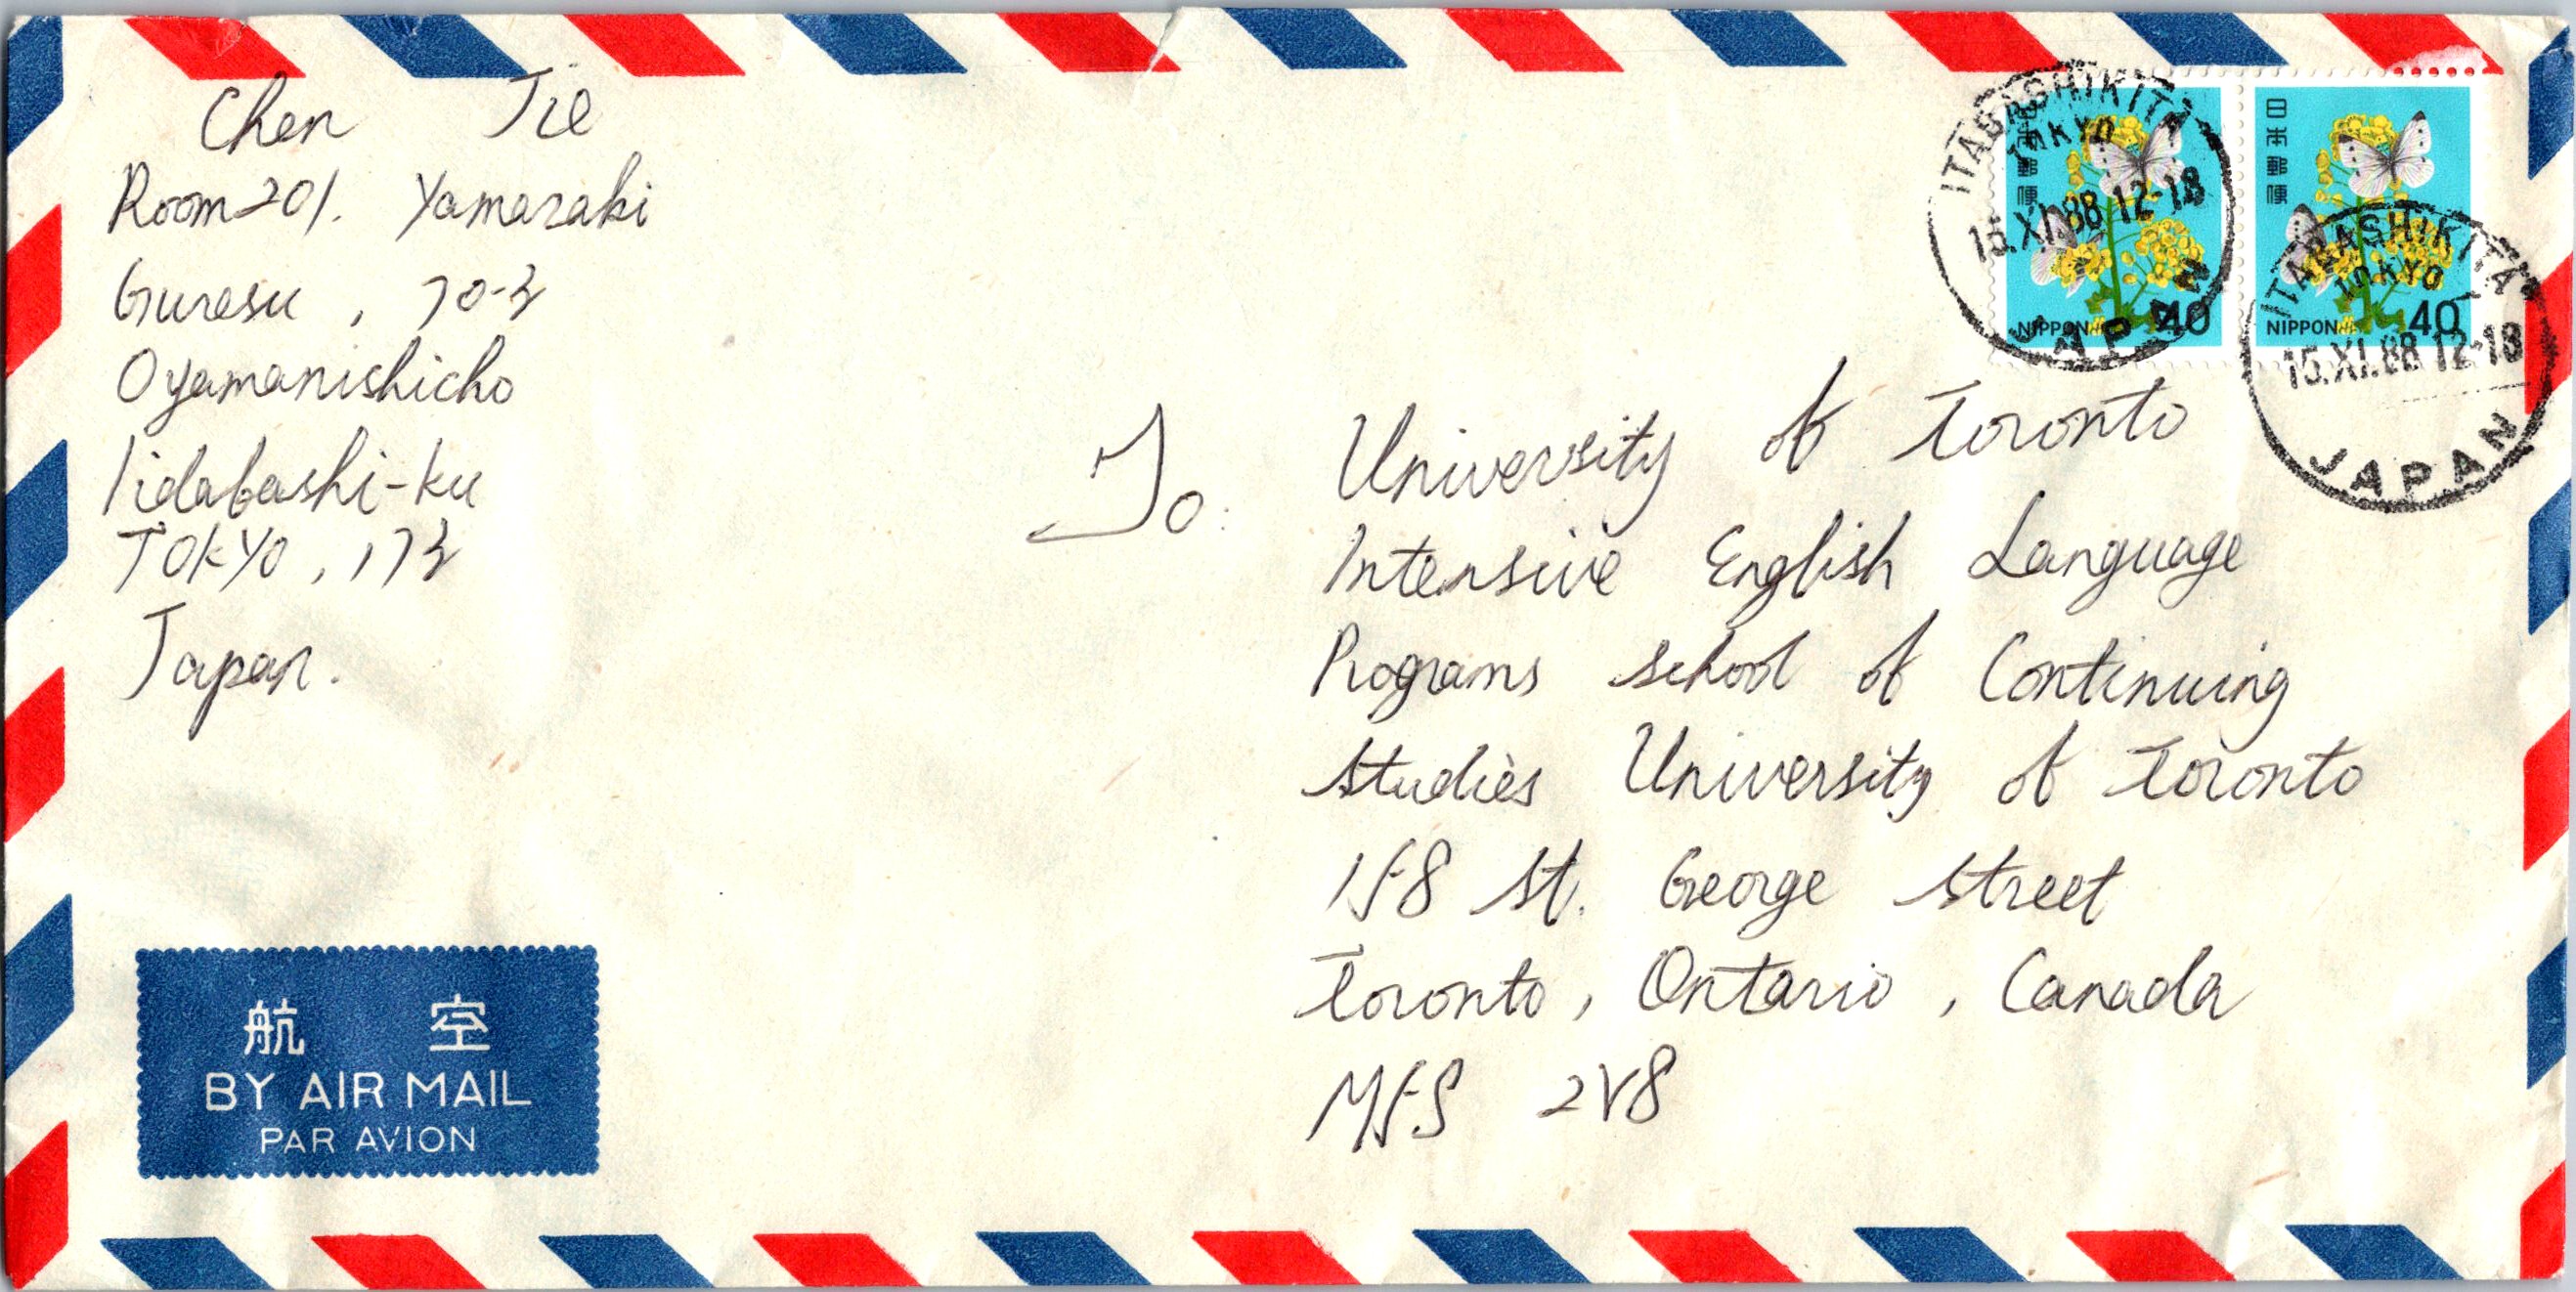 Chen Jie
Room 201. Yamazaki
Guresu, 70-3
Oyamanishicho
Iidabashi-ku
TOKYO, 173
Japan.
To:
University of Toronto
Intensive English Language
Programs School of Continuing
Studies University of Toronto
158 St. George Street
Toronto, Ontario, Canada
M5S 2V8
航 空
BY AIR MAIL
PAR AVION
日本郵便
NIPPON 40
ITABASHIKITA
TOKYO
15.XI.88 12-18
JAPAN
日本郵便
NIPPON 40
ITABASHIKITA
TOKYO
15.XI.88 12-18
JAPAN